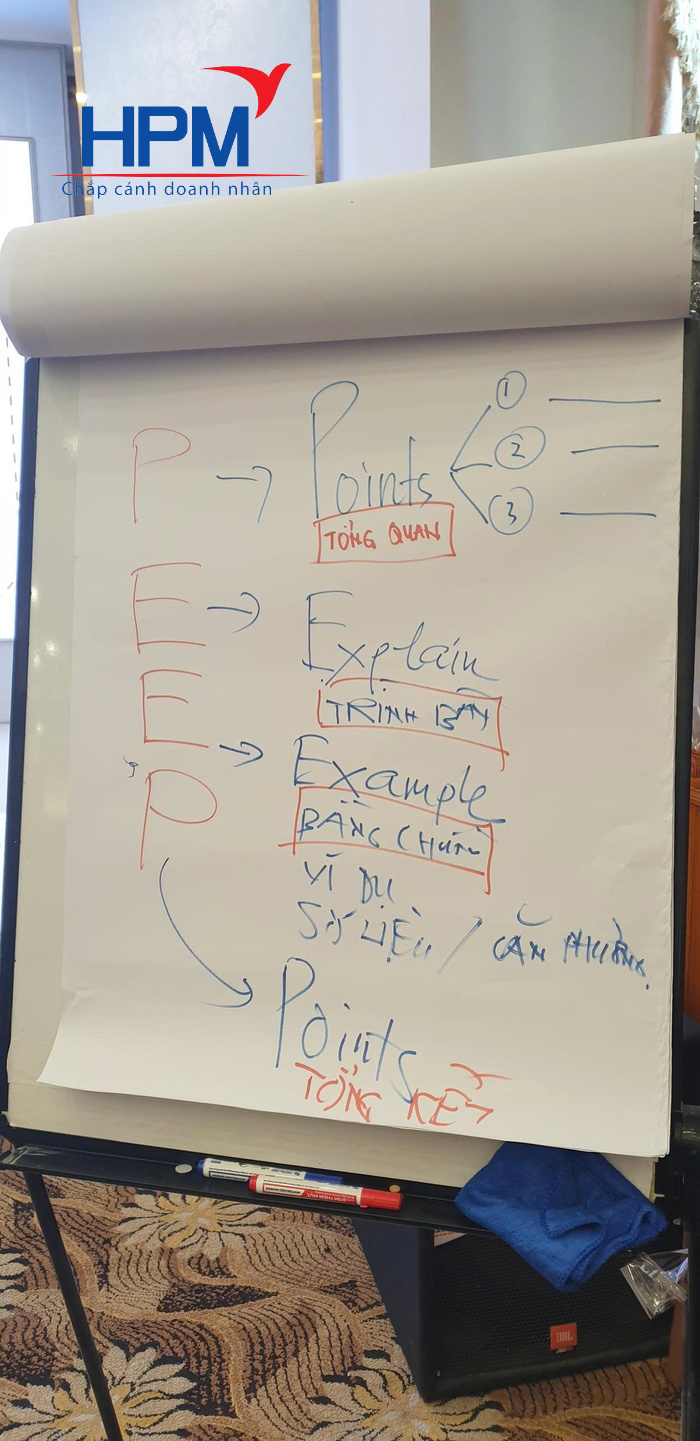 HPM
Chắp cánh doanh nhân
P → Points
① 
②
③
TỔNG QUAN
E → Explain
TRÌNH BÀY
E → Example
BẰNG CHỨN
VÍ DỤ
SỐ LIỆU /
P
Points
TỔNG KẾT
JBL